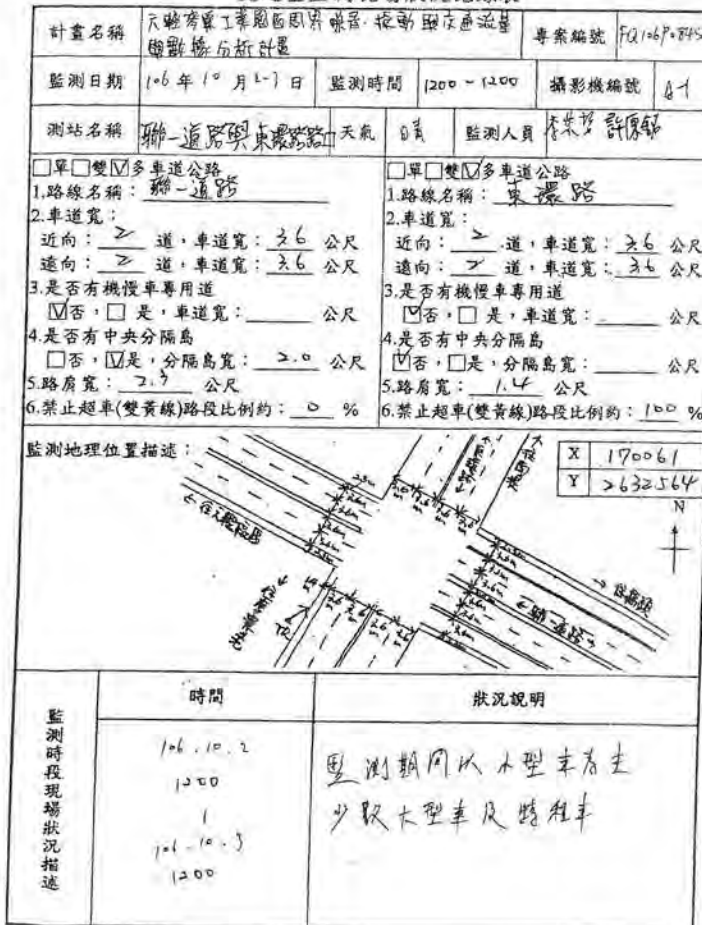 計畫名稱 六輕麥寮工業園區周界噪音、振動與交通流量
與數據分析計畫 專案編號 FQ106P0845
監測日期 106 年 10 月 2-3 日 監測時間 1200-1200 攝影機編號
測站名稱 聯一道路與東環路路口 天氣 晴 監測人員
□單□雙☑多車道公路
1.路線名稱：聯一道路
2.車道寬：
近向：2 道，車道寬：3.6 公尺
遠向：2 道，車道寬：3.6 公尺
3.是否有機慢車專用道
☑否，□是，車道寬： 公尺
4.是否有中央分隔島
□否，☑是，分隔島寬：2.0 公尺
5.路肩寬：2.5 公尺
6.禁止超車(雙黃線)路段比例約：0 %
□單□雙☑多車道公路
1.路線名稱：東環路
2.車道寬：
近向：2 道，車道寬：3.6 公尺
遠向：2 道，車道寬：3.6 公尺
3.是否有機慢車專用道
☑否，□是，車道寬： 公尺
4.是否有中央分隔島
☑否，□是，分隔島寬： 公尺
5.路肩寬：1.4 公尺
6.禁止超車(雙黃線)路段比例約：100 %
監測地理位置描述：
X 170061
Y 2632564
N
←往六輕廠區
←聯一道路→
→往橋頭
←東環路→
監測時段現場狀況描述
時間
狀況說明
106.10.2
1200
|
106.10.3
1200
監測期間以小型車為主
少數大型車及特種車